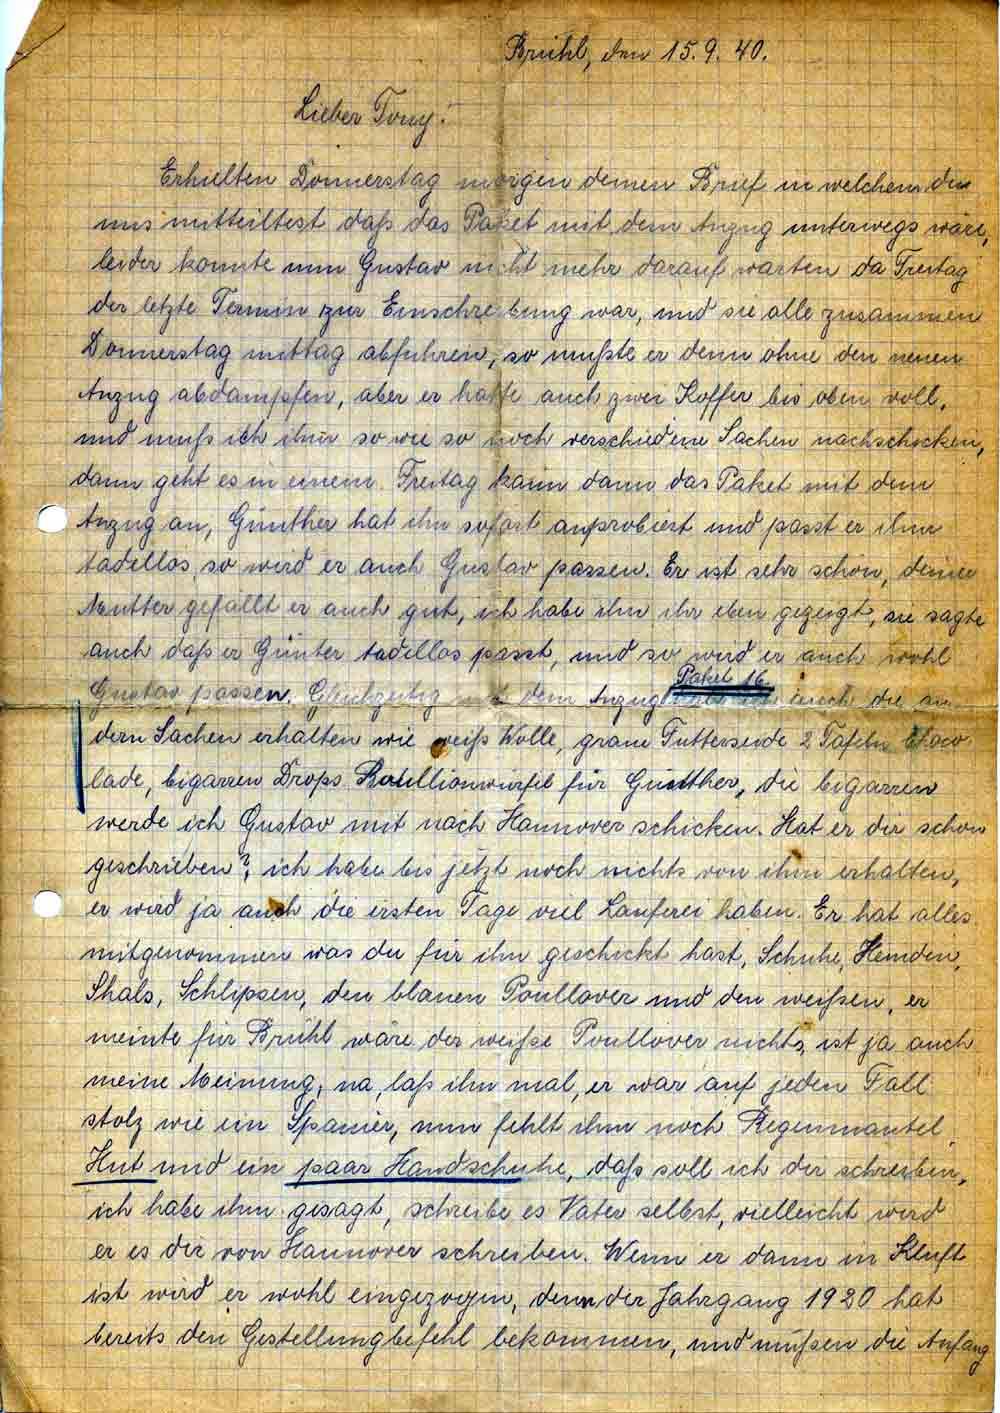 Brühl, den 15.9.40.
Lieber Tony!
Erhielten Donnerstag morgen deinen Brief in welchem du
uns mitteiltest daß das Paket mit dem Anzug unterwegs wäre,
leider konnte nun Gustav nicht mehr darauf warten da Freitag
der letzte Termin zur Einschreibung war, und sie alle zusammen
Donnerstag mittag abfuhren, so mußte er denn ohne den neuen
Anzug abdampfen, aber er hatte auch zwei Koffer bis oben voll,
und muß ich ihm so wie so noch verschiedene Sachen nachschicken,
dann geht es in einem. Freitag kam dann das Paket mit dem
Anzug an, Günther hat ihn sofort anprobiert und passt er ihm
tadellos, so wird er auch Gustav passen. Er ist sehr schön, deiner
Mutter gefällt er auch gut, ich habe ihn ihr eben gezeigt, sie sagte
auch daß er Günter tadellos passt, und so wird er auch wohl
Paket 16
Gustav passen. Gleichzeitig mit dem Anzug auch die an-
dern Sachen erhalten wie weiß Wolle, graue Futterseide 2 Tafeln Choco-
lade, Cigarren Drops Boullionwürfel für Günther, die Cigarren
werde ich Gustav mit nach Hannover schicken. Hat er dir schon
geschrieben?, ich habe bis jetzt noch nichts von ihm erhalten,
er wird ja auch die ersten Tage viel Lauferei haben. Er hat alles
mitgenommen was du für ihn geschickt hast, Schuhe, Hemden,
Shals, Schlipsen, den blauen Poullover und den weißen, er
meinte für Brühl wäre der weiße Poullover nichts, ist ja auch
meine Meinung, na, laß ihn mal, er war auf jeden Fall
stolz wie ein Spanier, nun fehlt ihm noch Regenmantel,
Hut und ein paar Handschuhe, daß soll ich dir schreiben,
ich habe ihm gesagt, schreibe es Vater selbst, vielleicht wird
er es dir von Hannover schreiben. Wenn er dann in Kluft
ist wird er wohl eingezogen, denn der Jahrgang 1920 hat
bereits den Gestellungbefehl bekommen, und müßen die Anfang